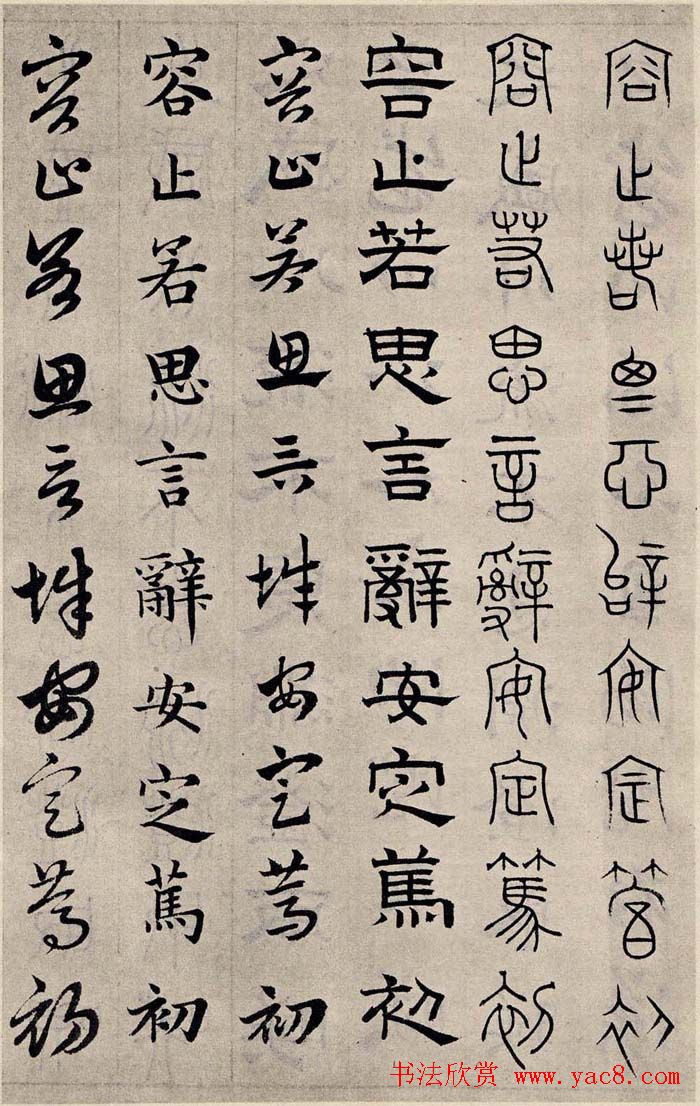 容止若思言辭安定篤初
容止若思言辭安定篤初
容止若思言辭安定篤初
容止若思言辭安定篤初
容止若思言辭安定篤初
容止若思言辭安定篤初
书法欣赏 www.yac8.com